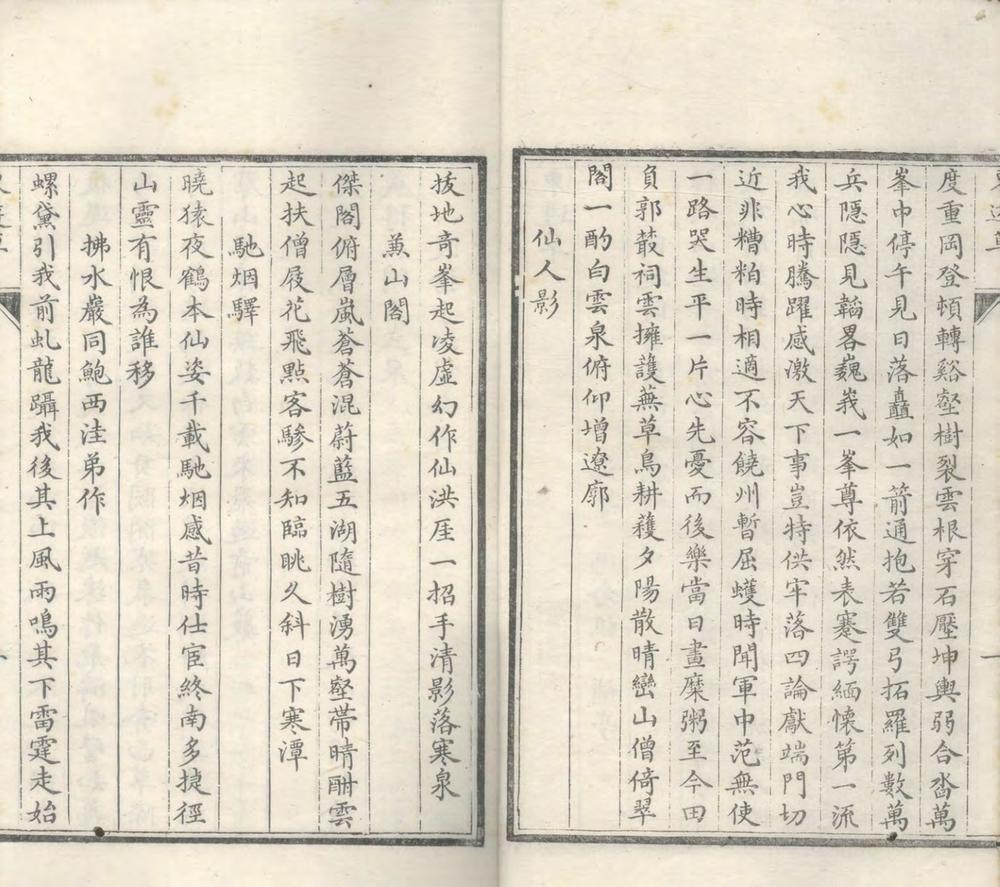 度重岡登頓轉谿壑樹裂雲根穿石壓坤輿弱合沓萬
峯中停午見日落矗如一箭通抱若雙弓拓羅列數萬
兵隱隱見韜畧巍峩一峯尊依然表蹇諤緬懷第一流
我心時騰躍感激天下事豈特供牢落四論獻端門切
近非糟粕時相適不容饒州暫屈蠖時聞軍中范無使
一路哭生平一片心先憂而後樂當日畫糜粥至今田
負郭菆祠雲擁護蕪草鳥耕穫夕陽散晴巒山僧倚翠
閣一酌白雲泉俯仰增遼廓
仙人影
拔地奇峯起凌虛幻作仙洪厓一招手清影落寒泉
蕉山閣
傑閣俯層嵐蒼蒼混蔚藍五湖隨樹湧萬壑帶晴酣雲
起扶僧屐花飛點客驂不知臨眺久斜日下寒潭
馳烟驛
曉猿夜鶴本仙姿千載馳烟感昔時仕宦終南多捷徑
山靈有恨為誰移
拂水巖同鮑西洼弟作
螺黛引我前虬龍躡我後其上風雨鳴其下雷霆走始